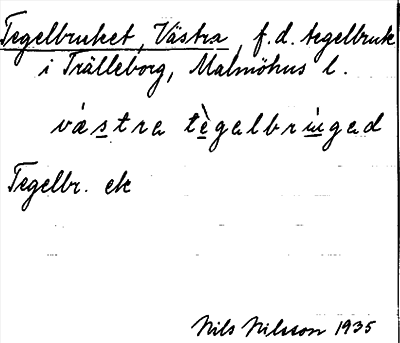 Tegelbruket, Västra, f.d. tegelbruk
i Trälleborg, Malmöhus l.
västra tègalbrùgad
Tegelbr. ek
Nils Nilsson 1935